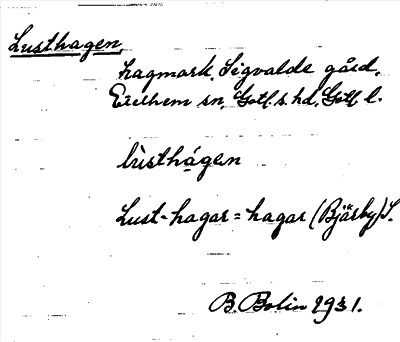 Lusthagen,
hagmark, Sigvalde gård,
Ezelhem sn, Gotl. s. hd, Gotl. l.
lùsthágen
Lust-hagar = hagar (Bjärby) S.
B. Bolin 1931.